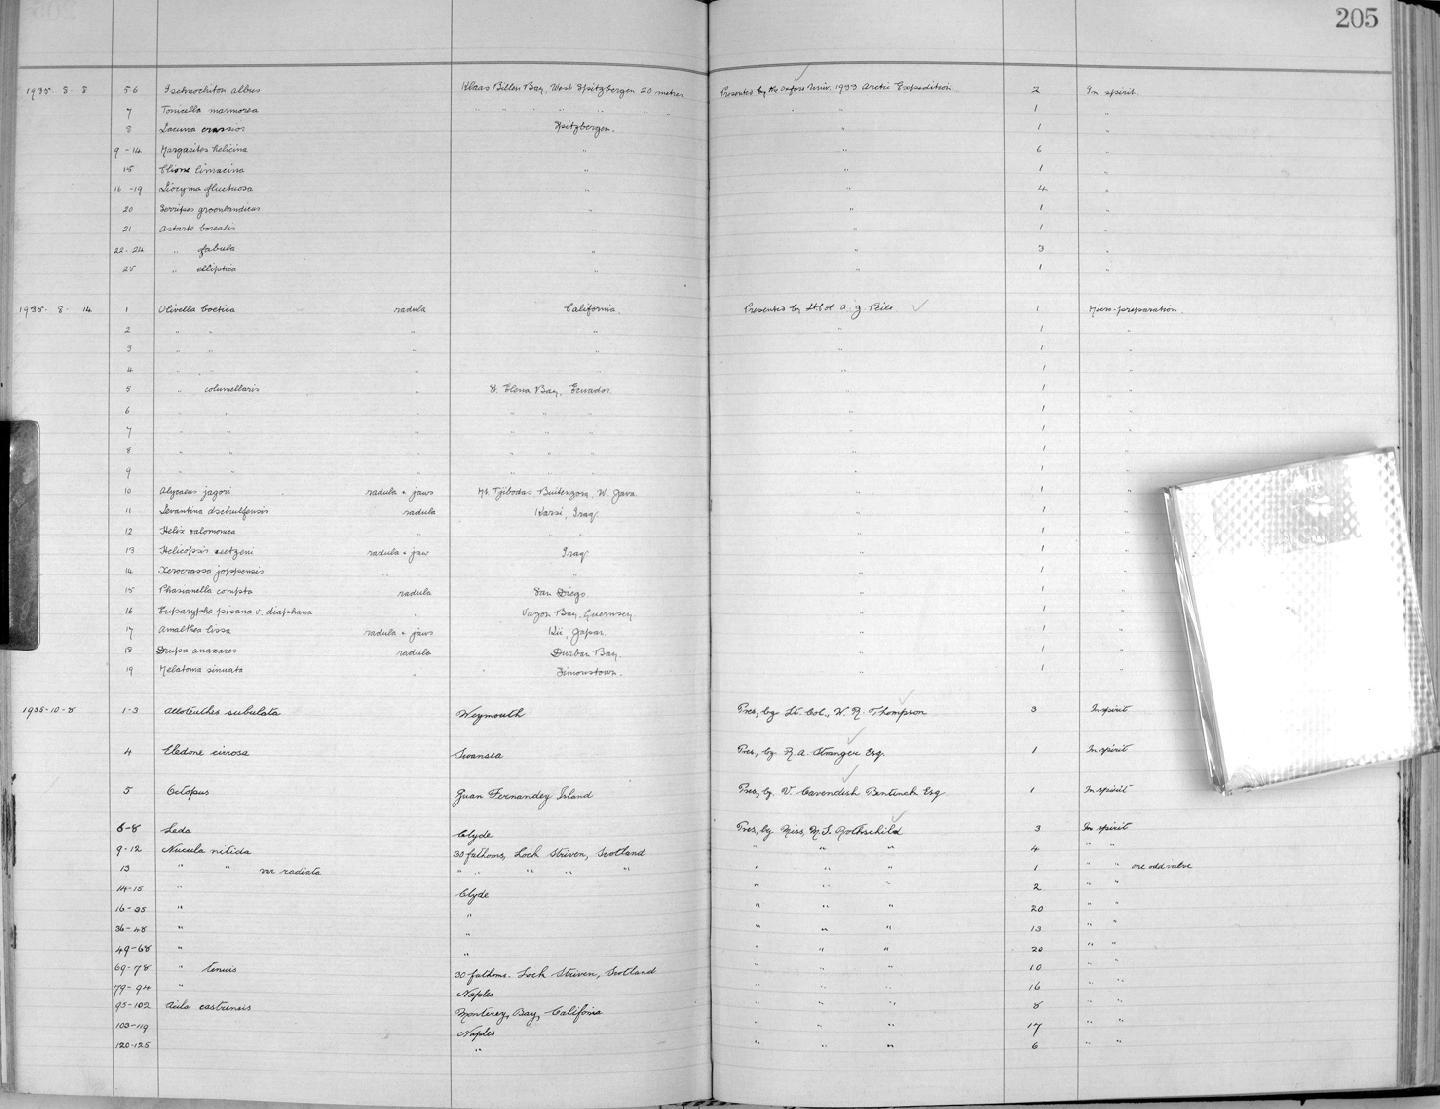 205
1935. 8. 8 56 Ischnochiton albus Klaas Billen Bay, West Spitzbergen 20 metres Presented by the Oxford Univ. 1933 Arctic Expedition 2 In spirit.
7 Tonicella marmorea " " " " " 1 "
8 Lacuna crassior Spitzbergen. " 1 "
9-14 Margarites helicina " " 6 "
15 Clione limacina " " 1 "
16-19 Liocyma fluctuosa " " 4 "
20 Serripes groenlandicus " " 1 "
21 Astarte borealis " 1 "
22-24 " fabula " " 3 "
25 " elliptica " " 1 "
1935. 8. 14 1 Olivella boetica radula California. Presented by Lt. Col. A. J. Peile 1 Micro-preparation
2 " " " " " 1 "
3 " " " " " 1 "
4 " " " " " 1 "
5 " columellaris S. Elena Bay, Ecuador. 1 "
6 " " " " " " 1 "
7 " " " " " " 1 "
8 " " " " " " 1 "
9 " " " " " " 1 "
10 Alycaeus jagori radula + jaws Mt. Tjibodas. Buitenzorg. W. Java. " 1 "
11 Levantina dschulfensis radula Karsi, Iraq. " 1 "
12 Helix salomonica " " " " 1 "
13 Helicopsis seetzeni radula + jaw Iraq. " 1 "
14 Xerocrassa joppensis " " " 1 "
15 Phasianella compta radula San Diego. " 1 "
16 Euparypha pisana v. diaphana " Vazon Bay, Guernsey " 1 "
17 Amalthea lissa radula + jaws Kii, Japan. " 1 "
18 Drupa anaxares radula Durban Bay. " 1 "
19 Melatoma sinuata " Simonstown. " 1 "
1935-10-8 1-3 Alloteuthis subulata Weymouth Pres, by Lt. Col., W. R. Thompson 3 In spirit
4 Eledone cirrosa Swansea Pres, by R. A. Stranger Esq. 1 In spirit
5 Octopus Juan Fernandez Island Pres, by. V. Cavendish Bentinck Esq 1 In spirit
6-8 Leda Clyde Pres, by Miss, M. S. Rothschild 3 In spirit
9-12 Nucula nitida 30 fathoms, Loch Striven, Scotland " " " 4 " "
13 " " var radiata " " " " " " " " 1 " " one odd valve
14-15 " Clyde " " " 2 " "
16-35 " " " " " 20 " "
36-48 " " " " " 13 " "
49-68 " " " " " 20 " "
69-78 " tenuis 30 fathoms. Loch Striven, Scotland " " " 10 " "
79-94 " Naples " " " 16 " "
95-102 Acila castrensis Monterey, Bay, Califonia " " " 8 " "
103-119 Naples " " " 17 " "
120-125 " " " " 6 " "